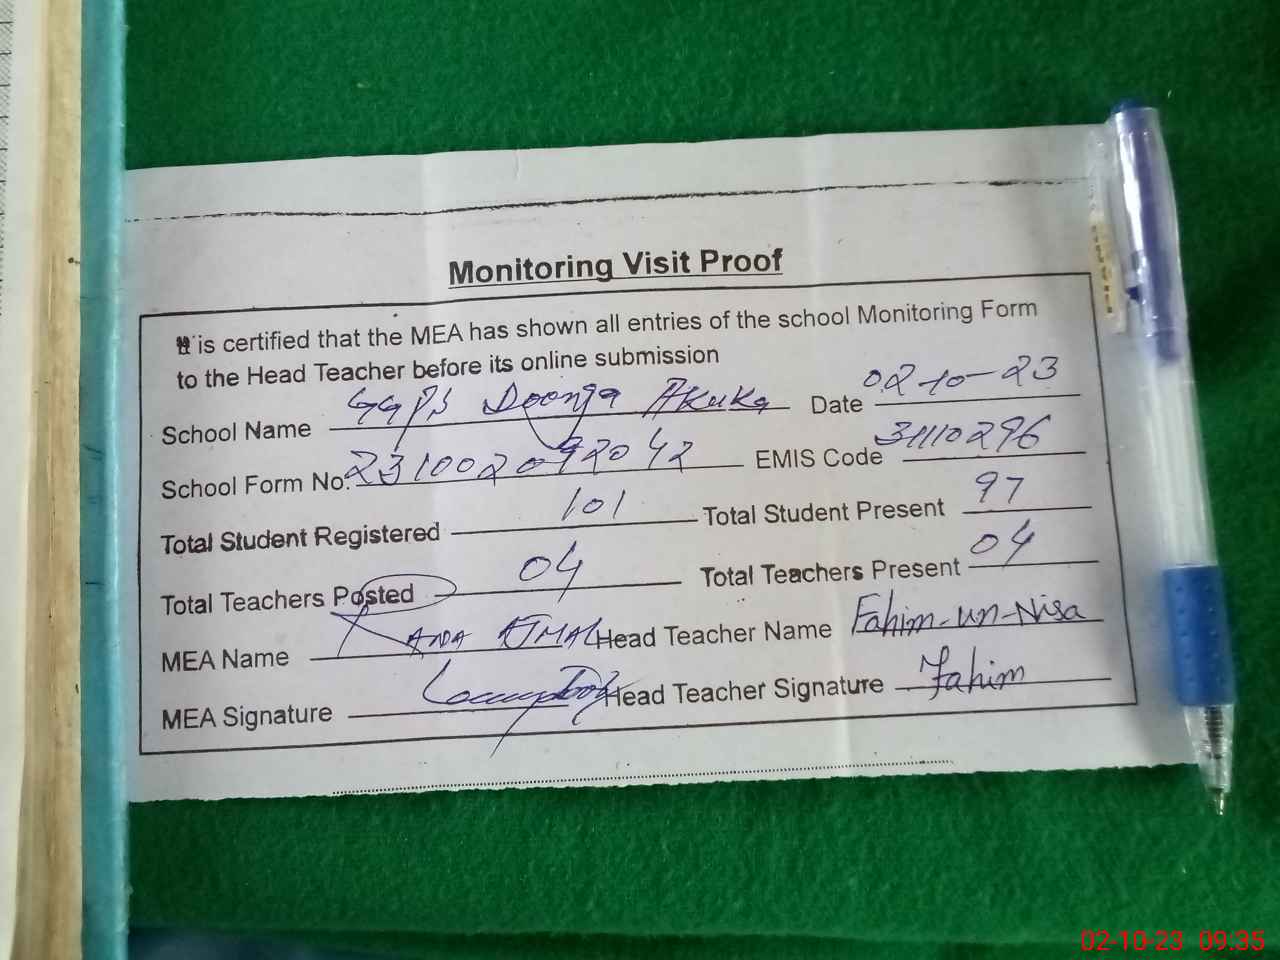 Monitoring Visit Proof
It is certified that the MEA has shown all entries of the school Monitoring Form
to the Head Teacher before its online submission
School Name GGPS Doonga Akuka Date 02-10-23
School Form No. 231002092042 EMIS Code 31110296
Total Student Registered 101 Total Student Present 97
Total Teachers Posted 04 Total Teachers Present 04
MEA Name AJMAL Head Teacher Name Fahim-un-Nisa
MEA Signature Head Teacher Signature Fahim
02-10-23 09:35